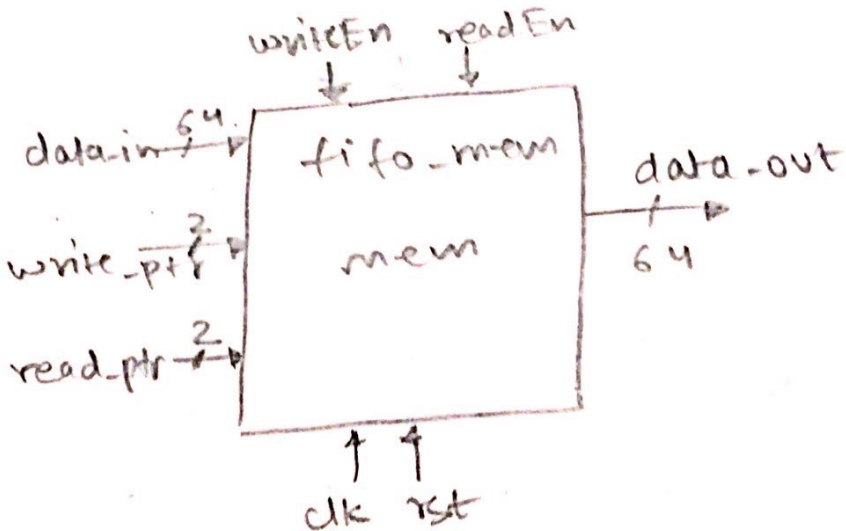 writeEn readEn
data_in 64
fifo_mem
data_out
64
write_ptr 2
mem
read_ptr 2
clk rst